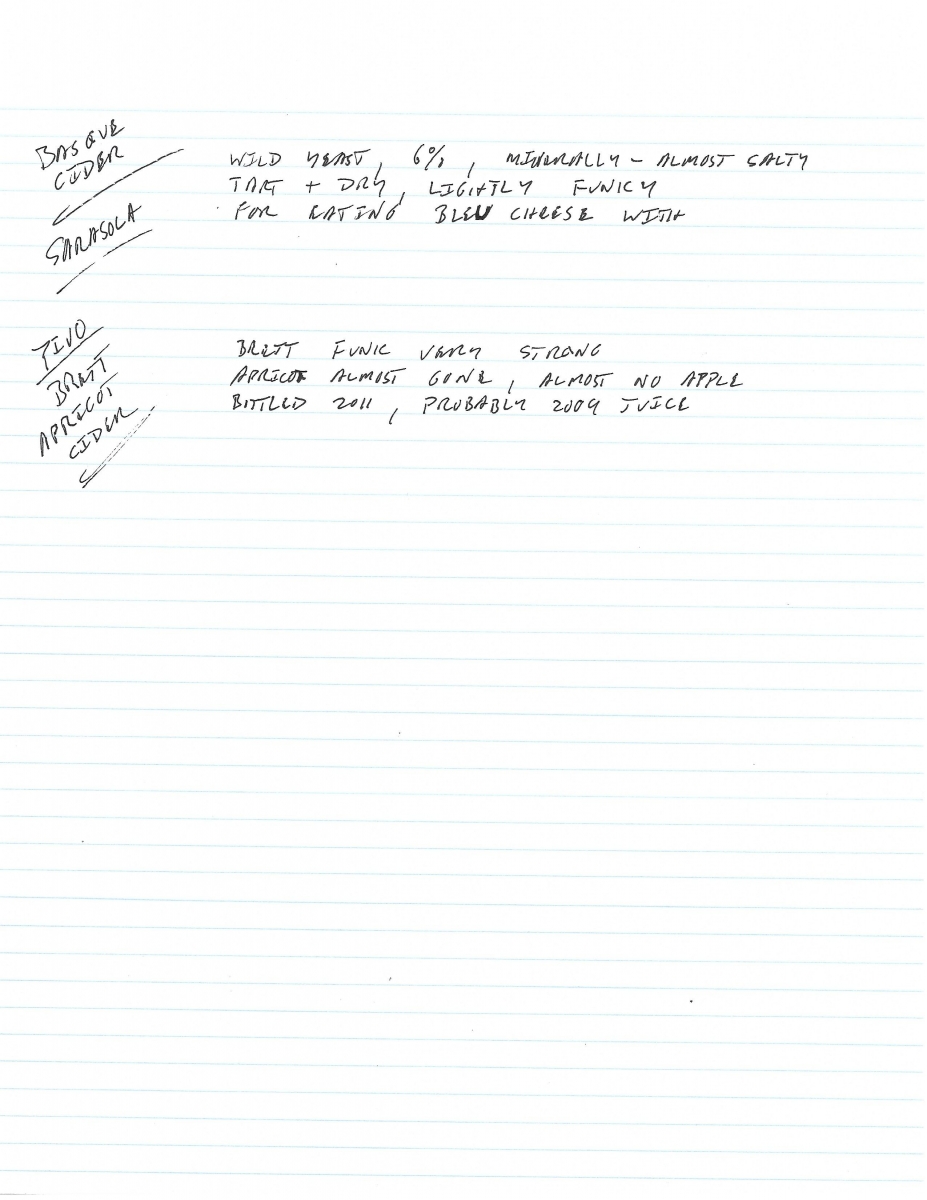 BASQUE
CIDER
SARASOLA
WILD YEAST, 6%, MINERALLY - ALMOST SALTY
TART + DRY, LIGHTLY FUNKY
FOR EATING BLEU CHEESE WITH
BRETT
APRICOT
CIDER
BRETT FUNK VERY STRONG
APRICOT ALMOST GONE, ALMOST NO APPLE
BOTTLED 2011, PROBABLY 2009 JUICE